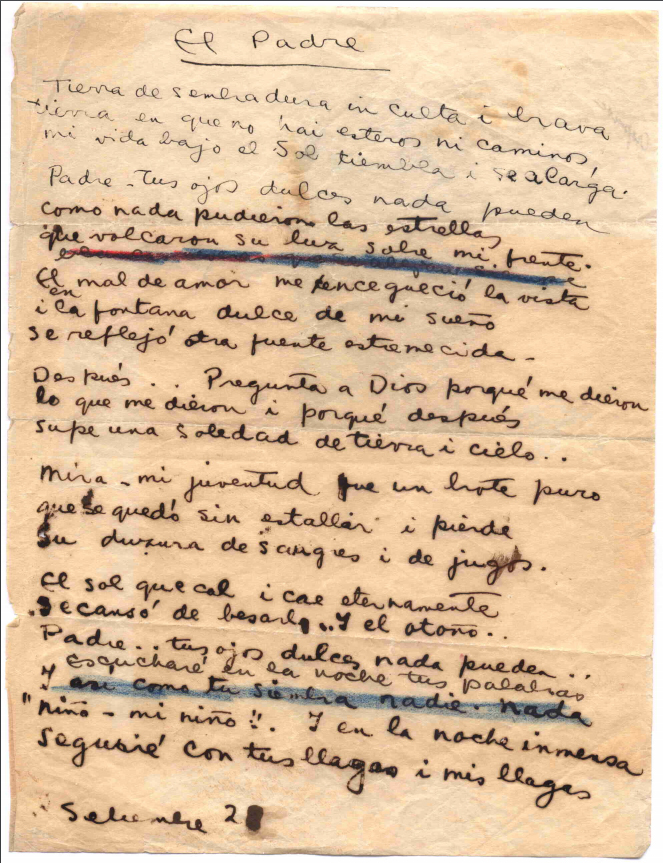 El Padre
Tierra de sembradura inculta i brava
tierra en que no hai esteros ni caminos,
mi vida bajo el Sol tiembla i se alarga.
Padre - tus ojos dulces nada pueden
como nada pudieron las estrellas
que volcaron su luz sobre mi frente.
El mal de amor me encegueció la vista
i en la fontana dulce de mi sueño
se reflejó otra fuente estremecida -
Después .. Pregunta a Dios porqué me dieron
lo que me dieron i porqué después
supe una soledad de tierra i cielo..
Mira - mi juventud fue un brote puro
que se quedó sin estallar i pierde
su dulzura de sangres i de jugos.
El sol que cae i cae eternamente
se cansó de besarla .. Y el otoño..
Padre.. tus ojos dulces nada pueden..
escucharé en la noche tus palabras
Y así como tu siembra nadie. nada
"niño - mi niño"!. Y en la noche inmensa
seguiré con tus llagas i mis llagas
Setiembre 2